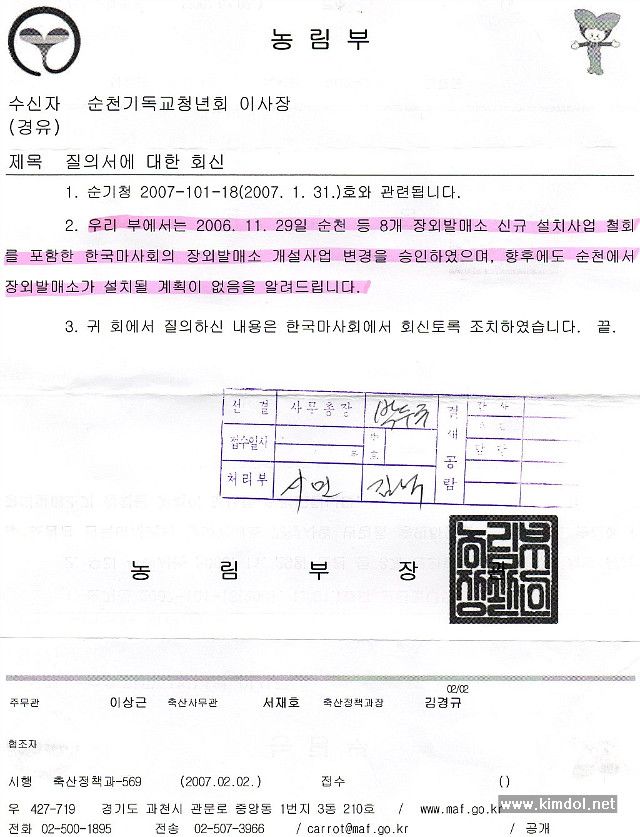 농 림 부
수신자 순천기독교청년회 이사장
(경유)
제목 질의서에 대한 회신
1. 순기청 2007-101-18(2007. 1. 31.)호와 관련됩니다.
2. 우리 부에서는 2006. 11. 29일 순천 등 8개 장외발매소 신규 설치사업 철회
를 포함한 한국마사회의 장외발매소 개설사업 변경을 승인하였으며, 향후에도 순천에서
장외발매소가 설치될 계획이 없음을 알려드립니다.
3. 귀 회에서 질의하신 내용은 한국마사회에서 회신토록 조치하였습니다. 끝.
선 결 사무총장 결재공람
접수일시
처리부 시민
농 림 부 장 관
02/02
주무관 이상근 축산사무관 서재호 축산정책과장 김경규
협조자
시행 축산정책과-569 (2007.02.02.) 접수 ()
우 427-719 경기도 과천시 관문로 중앙동 1번지 3동 210호 / www.maf.go.kr
www.kimdol.net
전화 02-500-1895 전송 02-507-3966 / carrot@maf.go.kr / 공개